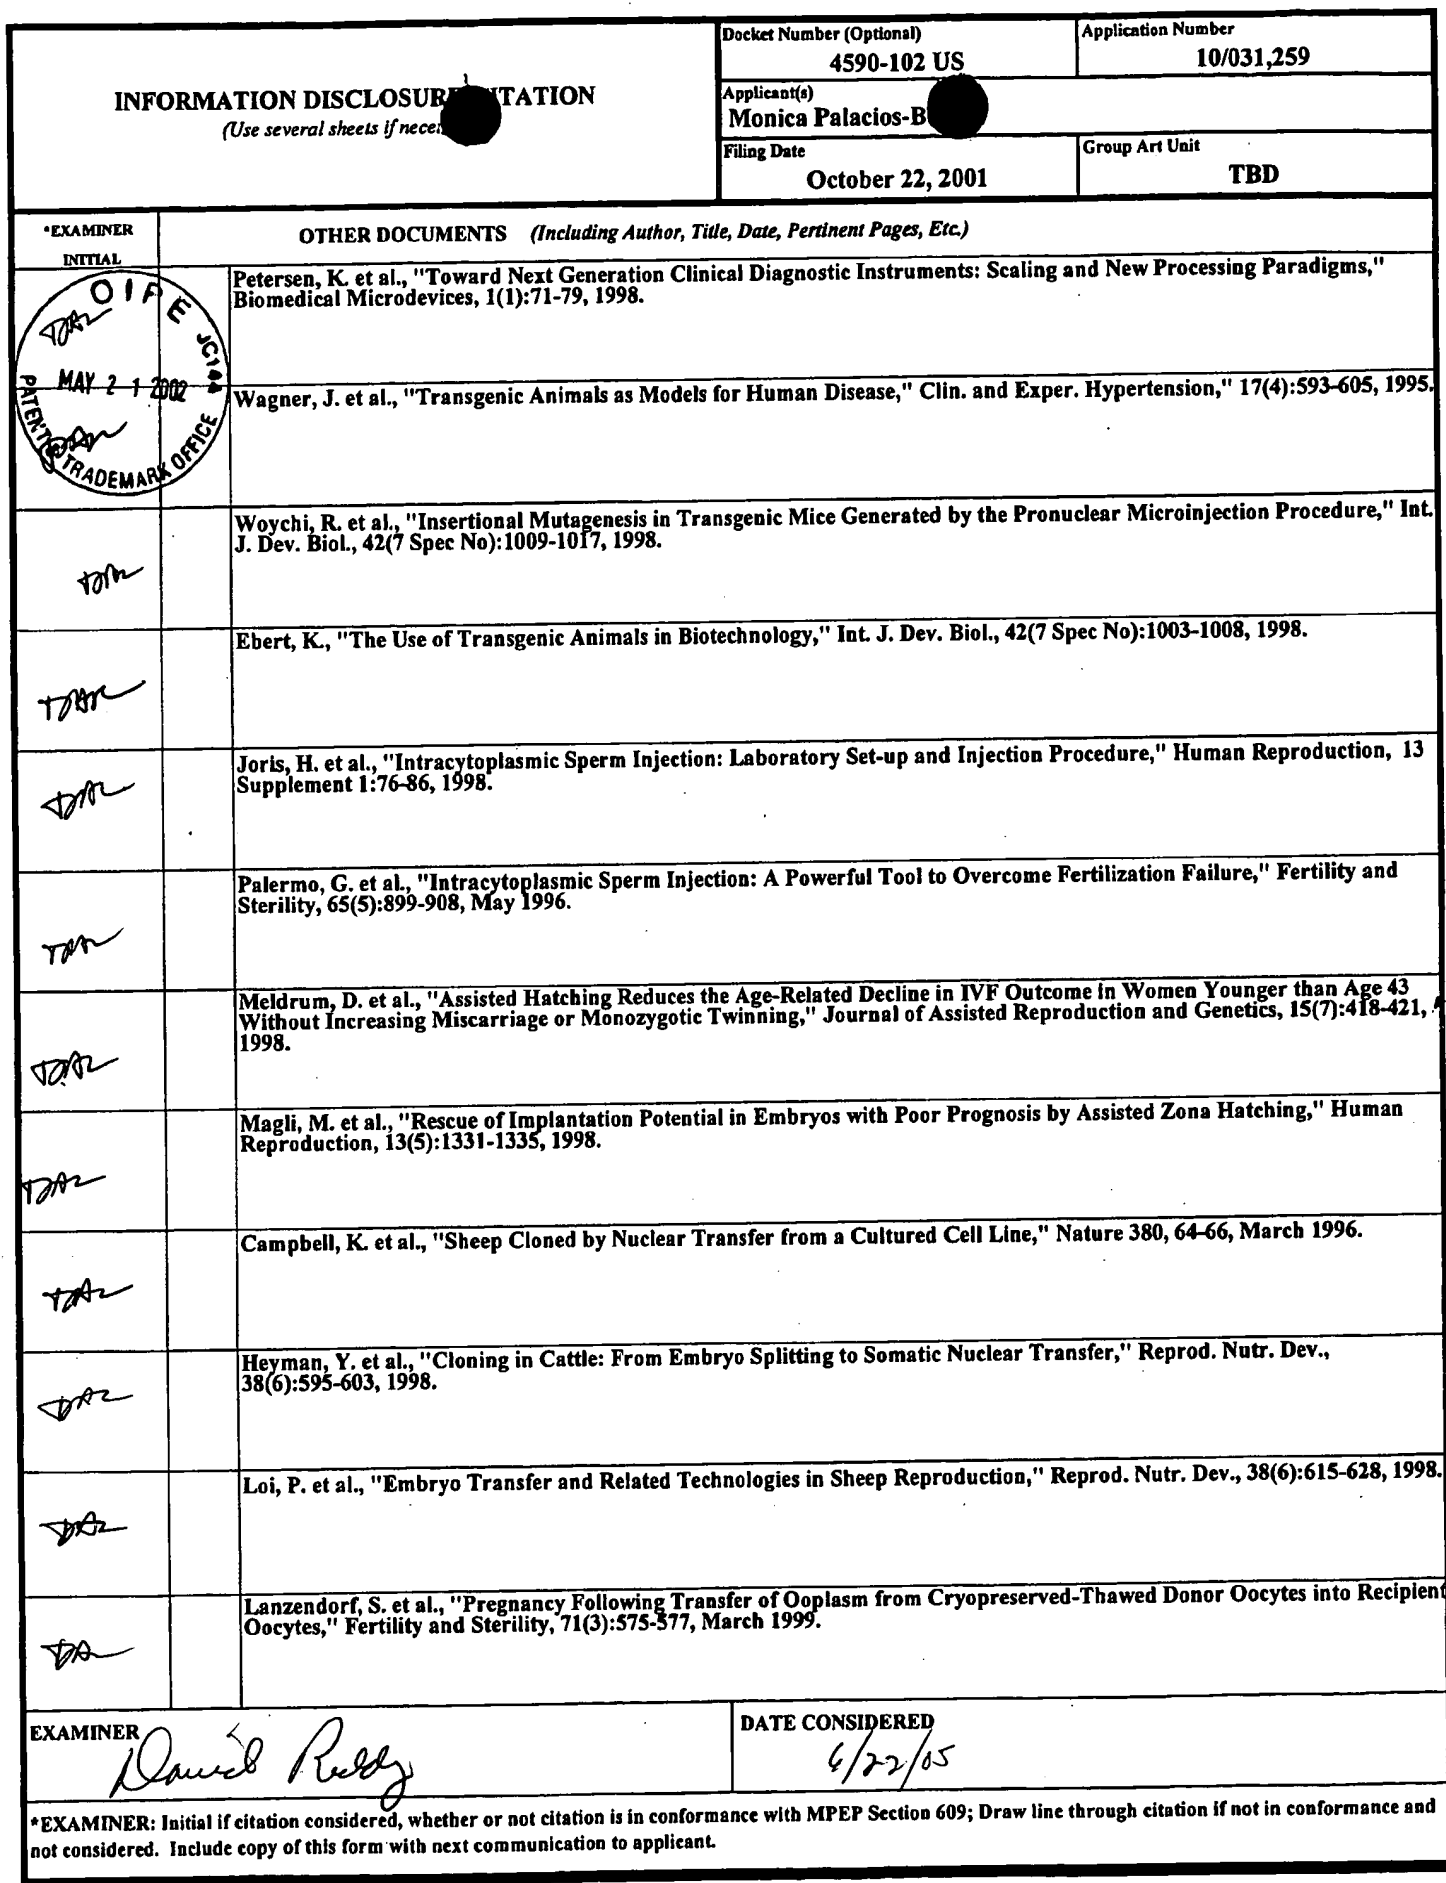 Docket Number (Optional)
4590-102 US
Application Number
10/031,259
INFORMATION DISCLOSURE CITATION
(Use several sheets if
Applicant(s)
Monica Palacios-B
Filing Date
October 22, 2001
Group Art Unit
TBD
*EXAMINER
INITIAL
OTHER DOCUMENTS (Including Author, Title, Date, Pertinent Pages, Etc.)
OIPE JC144
MAY 21 2002
PATENT & TRADEMARK OFFICE
Petersen, K. et al., "Toward Next Generation Clinical Diagnostic Instruments: Scaling and New Processing Paradigms,"
Biomedical Microdevices, 1(1):71-79, 1998.
Wagner, J. et al., "Transgenic Animals as Models for Human Disease," Clin. and Exper. Hypertension," 17(4):593-605, 1995.
Woychi, R. et al., "Insertional Mutagenesis in Transgenic Mice Generated by the Pronuclear Microinjection Procedure," Int.
J. Dev. Biol., 42(7 Spec No):1009-1017, 1998.
Ebert, K., "The Use of Transgenic Animals in Biotechnology," Int. J. Dev. Biol., 42(7 Spec No):1003-1008, 1998.
Joris, H. et al., "Intracytoplasmic Sperm Injection: Laboratory Set-up and Injection Procedure," Human Reproduction, 13
Supplement 1:76-86, 1998.
Palermo, G. et al., "Intracytoplasmic Sperm Injection: A Powerful Tool to Overcome Fertilization Failure," Fertility and
Sterility, 65(5):899-908, May 1996.
Meldrum, D. et al., "Assisted Hatching Reduces the Age-Related Decline in IVF Outcome in Women Younger than Age 43
Without Increasing Miscarriage or Monozygotic Twinning," Journal of Assisted Reproduction and Genetics, 15(7):418-421,
1998.
Magli, M. et al., "Rescue of Implantation Potential in Embryos with Poor Prognosis by Assisted Zona Hatching," Human
Reproduction, 13(5):1331-1335, 1998.
Campbell, K. et al., "Sheep Cloned by Nuclear Transfer from a Cultured Cell Line," Nature 380, 64-66, March 1996.
Heyman, Y. et al., "Cloning in Cattle: From Embryo Splitting to Somatic Nuclear Transfer," Reprod. Nutr. Dev.,
38(6):595-603, 1998.
Loi, P. et al., "Embryo Transfer and Related Technologies in Sheep Reproduction," Reprod. Nutr. Dev., 38(6):615-628, 1998.
Lanzendorf, S. et al., "Pregnancy Following Transfer of Ooplasm from Cryopreserved-Thawed Donor Oocytes into Recipient
Oocytes," Fertility and Sterility, 71(3):575-577, March 1999.
EXAMINER
DATE CONSIDERED
6/22/05
*EXAMINER: Initial if citation considered, whether or not citation is in conformance with MPEP Section 609; Draw line through citation if not in conformance and
not considered. Include copy of this form with next communication to applicant.